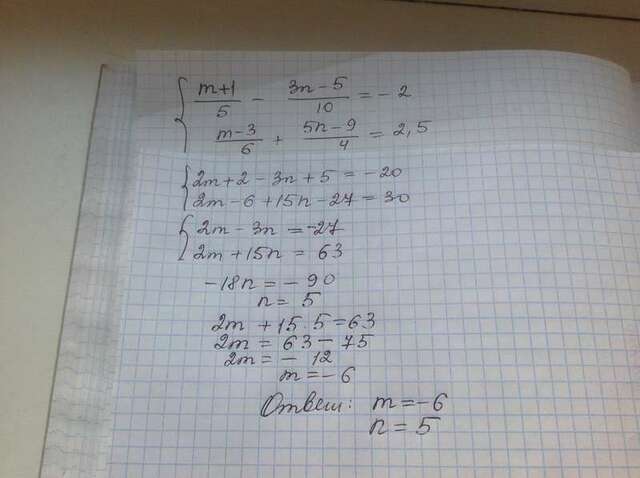 { (m+1)/5 - (3n-5)/10 = -2
(m-3)/6 + (5n-9)/4 = 2,5
{ 2m+2-3n+5=-20
2m-6+15n-27=30
{ 2m-3n=-27
2m+15n=63
-18n=-90
n=5
2m+15·5=63
2m=63-75
2m=-12
m=-6
Ответ: m=-6
n=5